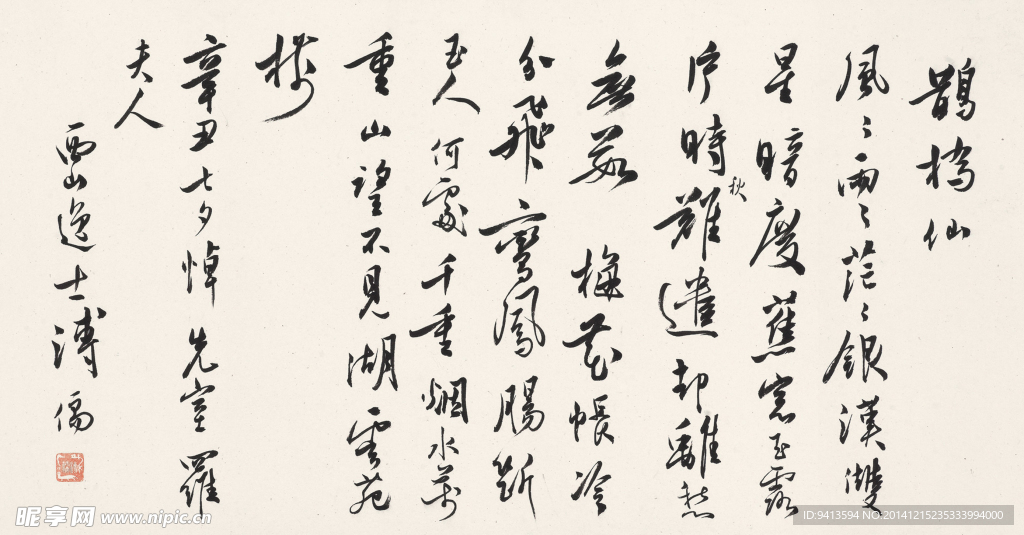 鵲橋仙
風〻雨〻茫〻銀漢雙
星暗度蕉窓玉露
片時秋難遣却離愁
無數 梅花帳冷
分飛鸞鳳腸斷
玉人何處千重烟水萬
重山望不見湖雲苑
樹
辛丑七夕悼 先室羅
夫人
西山逸士溥儒
昵享网 www.nipic.cn
ID:9413594 NO:20141215235333994000